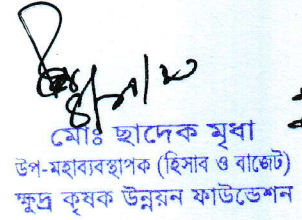 মোঃ ছাদেক মৃধা
উপ-মহাব্যবস্থাপক (হিসাব ও বাজেট)
ক্ষুদ্র কৃষক উন্নয়ন ফাউন্ডেশন